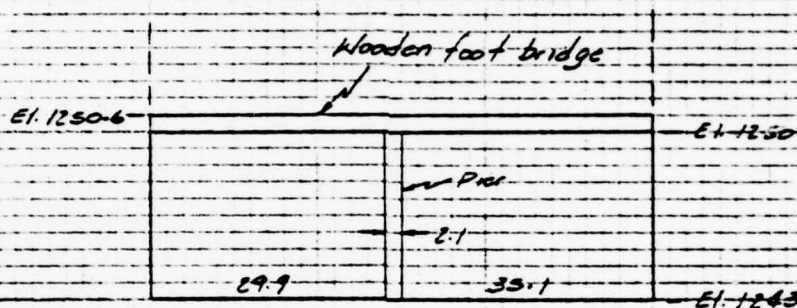 Wooden foot bridge
El. 1250.6
El. 1250
Pier
2.1
29.9
35.1
El. 1243